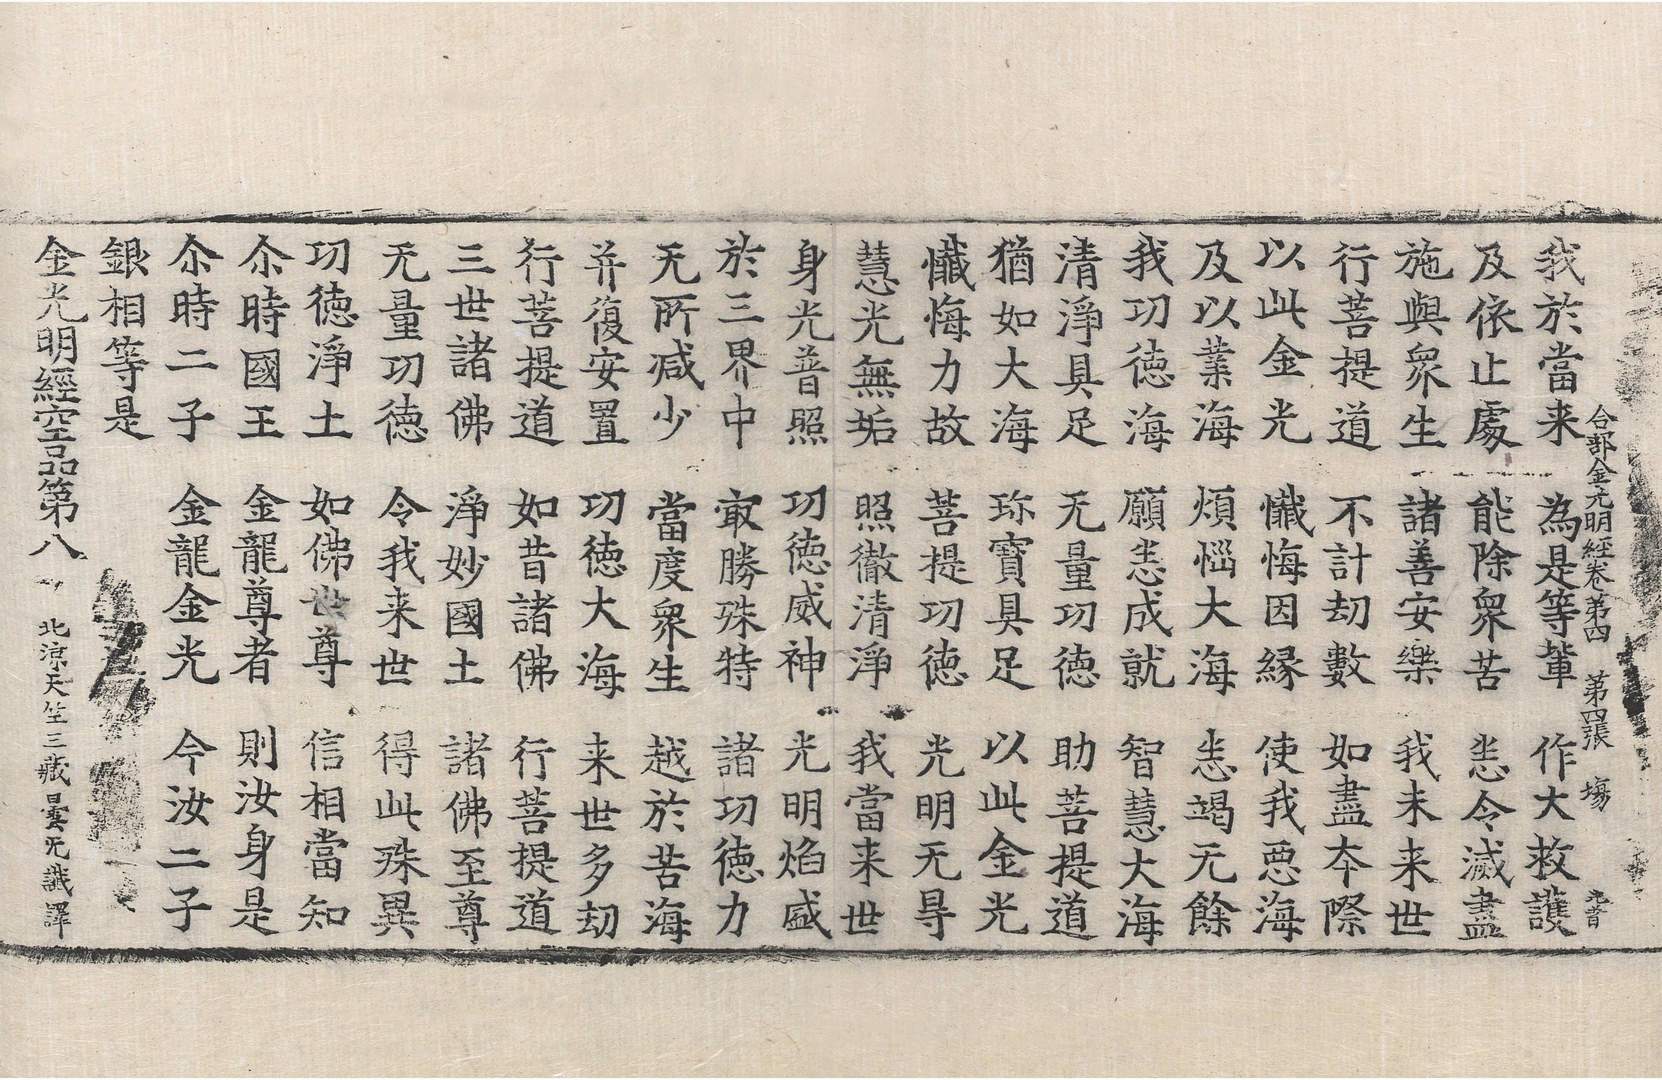 合部金光明經卷第四　第四張　塲
我於當来　為是等輩　作大救護
及依止處　能除衆苦　悉令滅盡
施與衆生　諸善安樂　我未来世
行菩提道　不計劫數　如盡夲際
以此金光　懴悔因緣　使我悪海
及以業海　煩惱大海　悉竭无餘
我功徳海　願悉成就　智慧大海
清淨具足　无量功徳　助菩提道
猶如大海　珎寶具足　以此金光
懴悔力故　菩提功徳　光明无㝵
慧光無垢　照徹清淨　我當来世
身光普照　功徳威神　光明焰盛
於三界中　㝡勝殊特　諸功徳力
无所减少　當度衆生　越於苦海
并復安置　功徳大海　来世多劫
行菩提道　如昔諸佛　行菩提道
三世諸佛　淨妙國土　諸佛至尊
无量功徳　令我来世　得此殊異
功徳淨土　如佛世尊　信相當知
尒時國王　金龍尊者　則汝身是
尒時二子　金龍金光　今汝二子
銀相等是
金光明經空品第八　北涼天竺三藏曇无讖譯